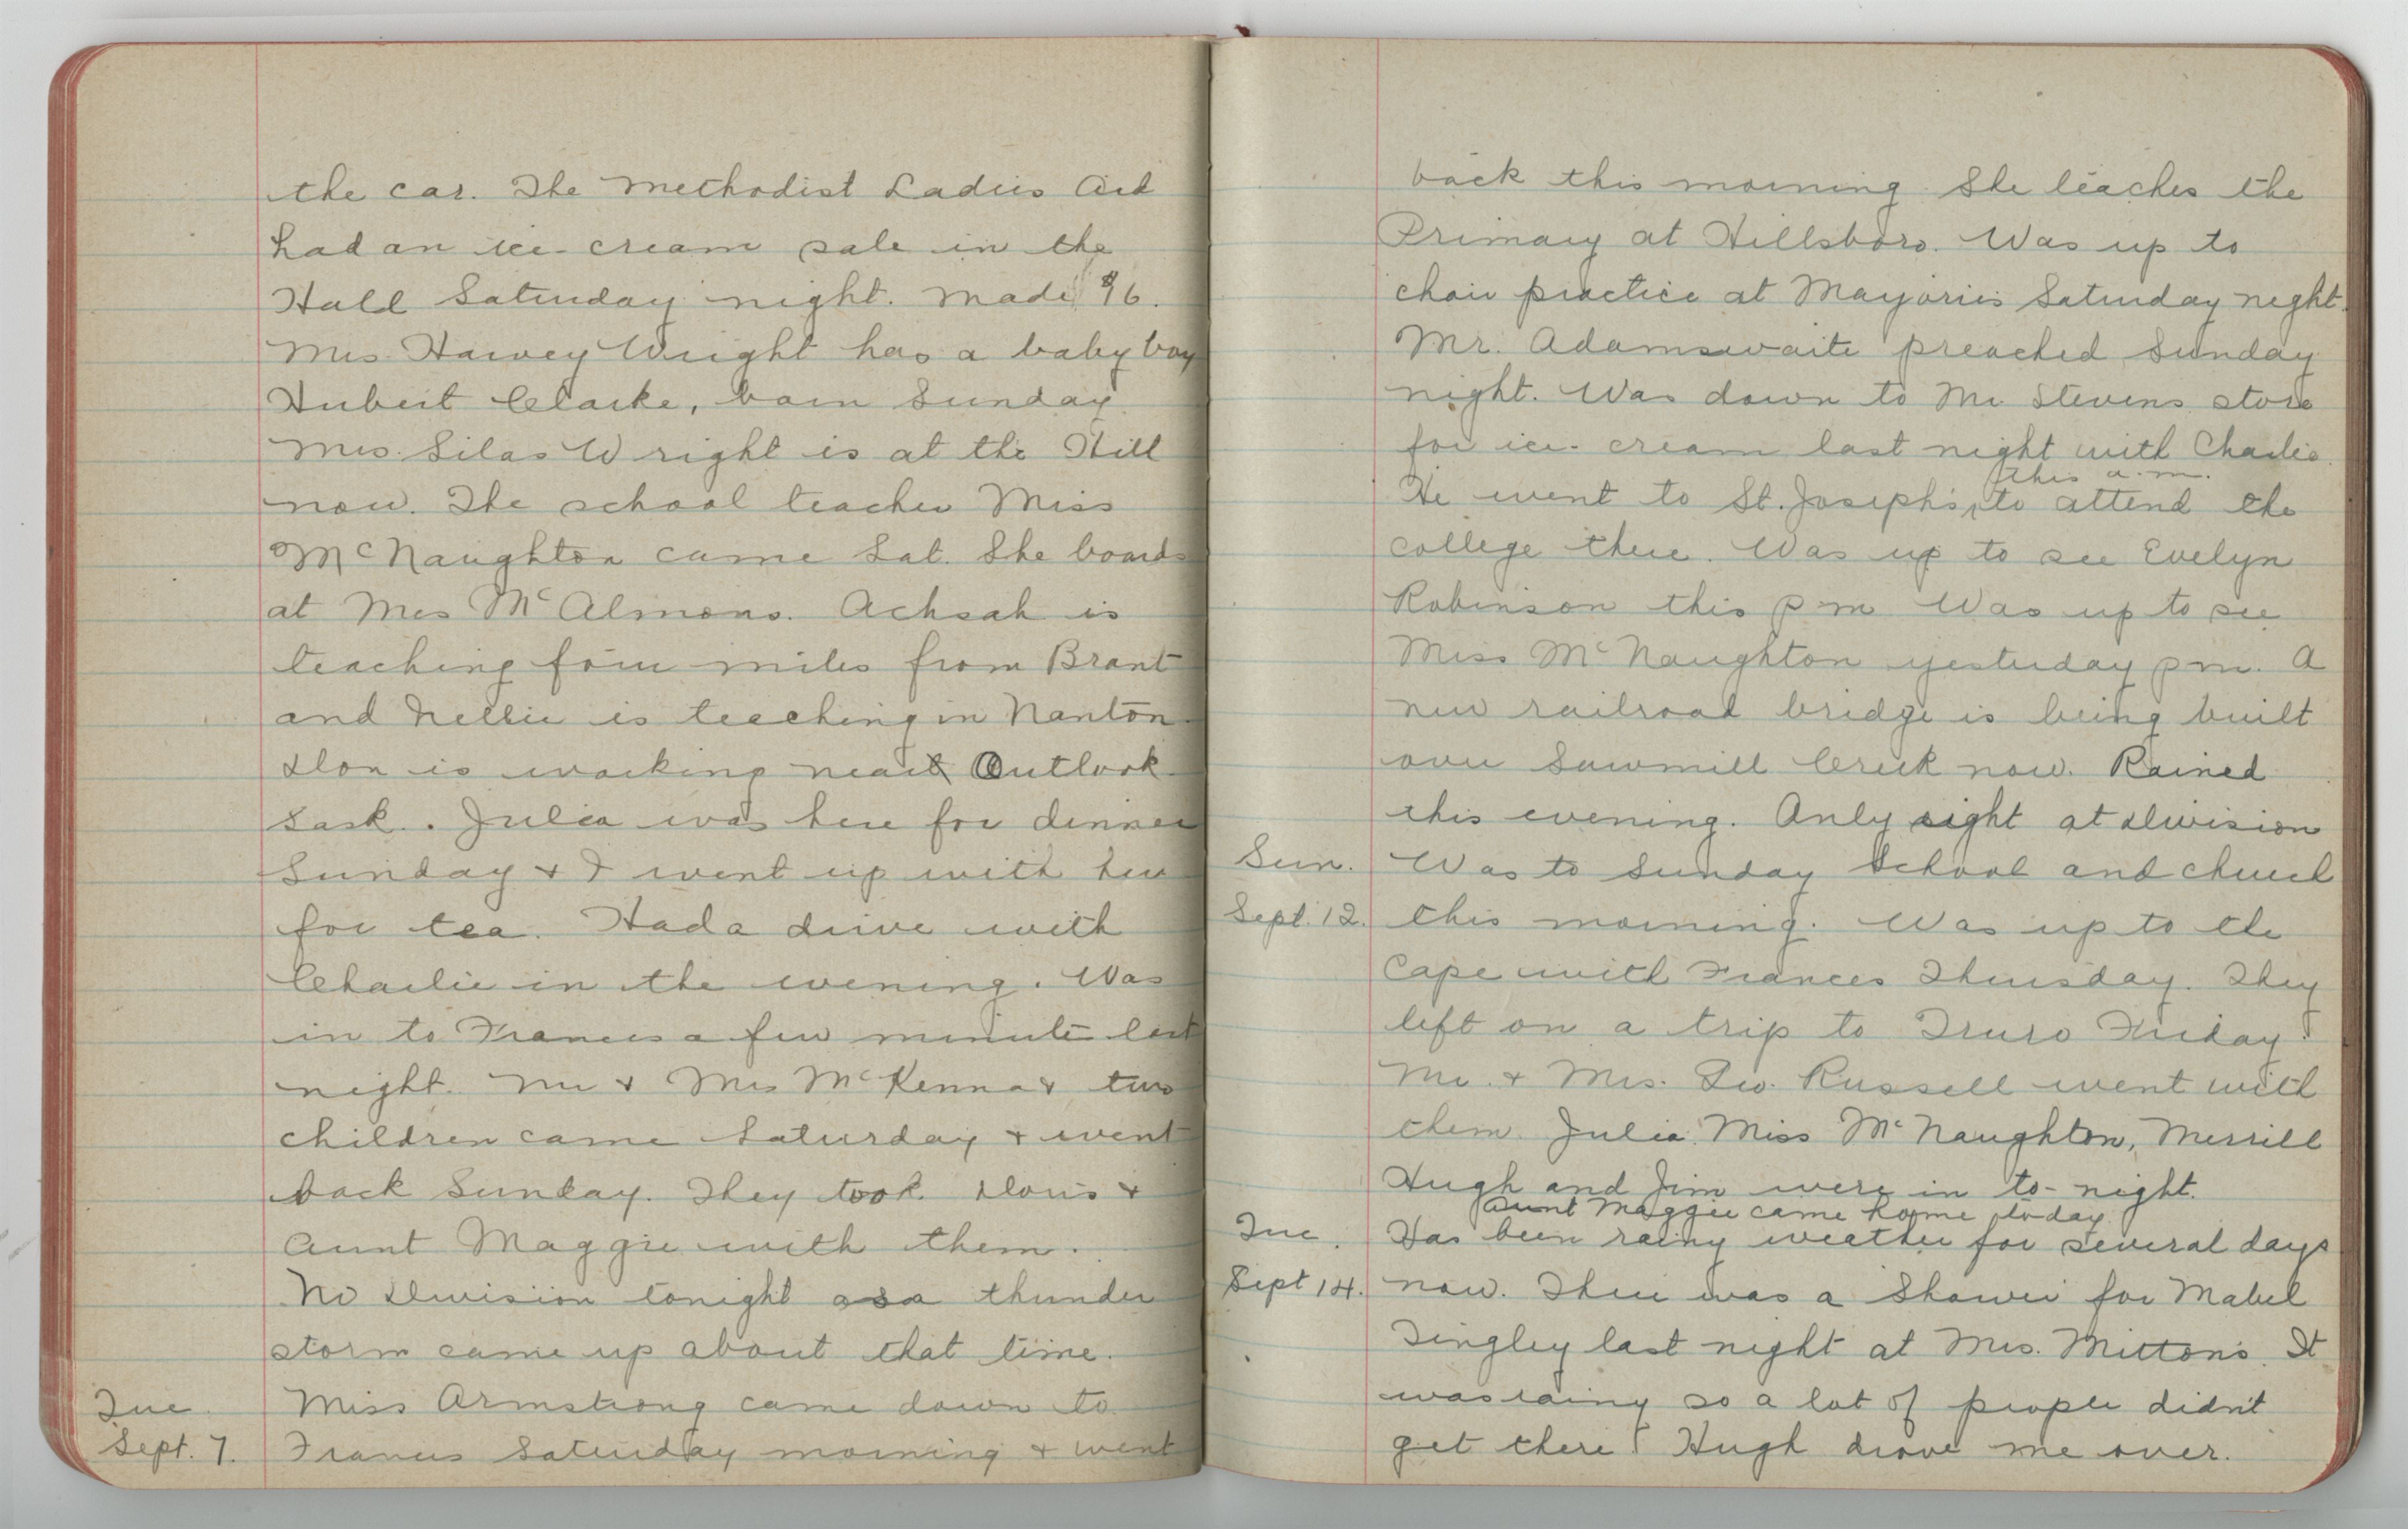 the car. The Methodist Ladies Aid
had an ice-cream sale in the
Hall Saturday night. Made $16.
Mrs. Harvey Wright has a baby boy
Hubert Clarke, born Sunday.
Mrs. Silas Wright is at the Hill
now. The school teacher Miss
McNaughton came Sat. She boards
at Mrs McAlmons. Achsah is
teaching four miles from Brant
and Nellie is teaching in Nanton.
Don is working near Outlook
Sask. Julia was here for dinner
Sunday & I went up with her
for tea. Had a drive with
Charlie in the evening. Was
in to Frances a few minutes last
night. Mr & Mrs McKenna & two
children came Saturday & went
back Sunday. They took Doris &
Aunt Maggie with them.
No Division tonight as a thunder
storm came up about that time.
Tue. Miss Armstrong came down to
Sept. 7. Frances Saturday morning & went
back this morning. She teaches the
Primary at Hillsboro. Was up to
choir practice at Marjories Saturday night.
Mr. Adamswaite preached Sunday
night. Was down to Mr. Stevens store
for ice-cream last night with Charlie.
this a.m.
He went to St. Joseph's to attend the
college there. Was up to see Evelyn
Robinson this p m Was up to see
Miss McNaughton yesterday p m. A
new railroad bridge is being built
over Sawmill Creek now. Rained
this evening. Only eight at Division
Sun. Was to Sunday School and church
Sept. 12. this morning. Was up to the
Cape with Frances Thursday. They
left on a trip to Truro Friday.
Mr. & Mrs. Geo. Russell went with
them. Julia, Miss McNaughton, Merrill
Hugh and Jim were in to-night.
Aunt Maggie came home today.
Tue. Has been rainy weather for several days
Sept 14. now. There was a Shower for Mabel
Tingley last night at Mrs. Mitton's. It
was rainy so a lot of people didn't
get there. Hugh drove me over.